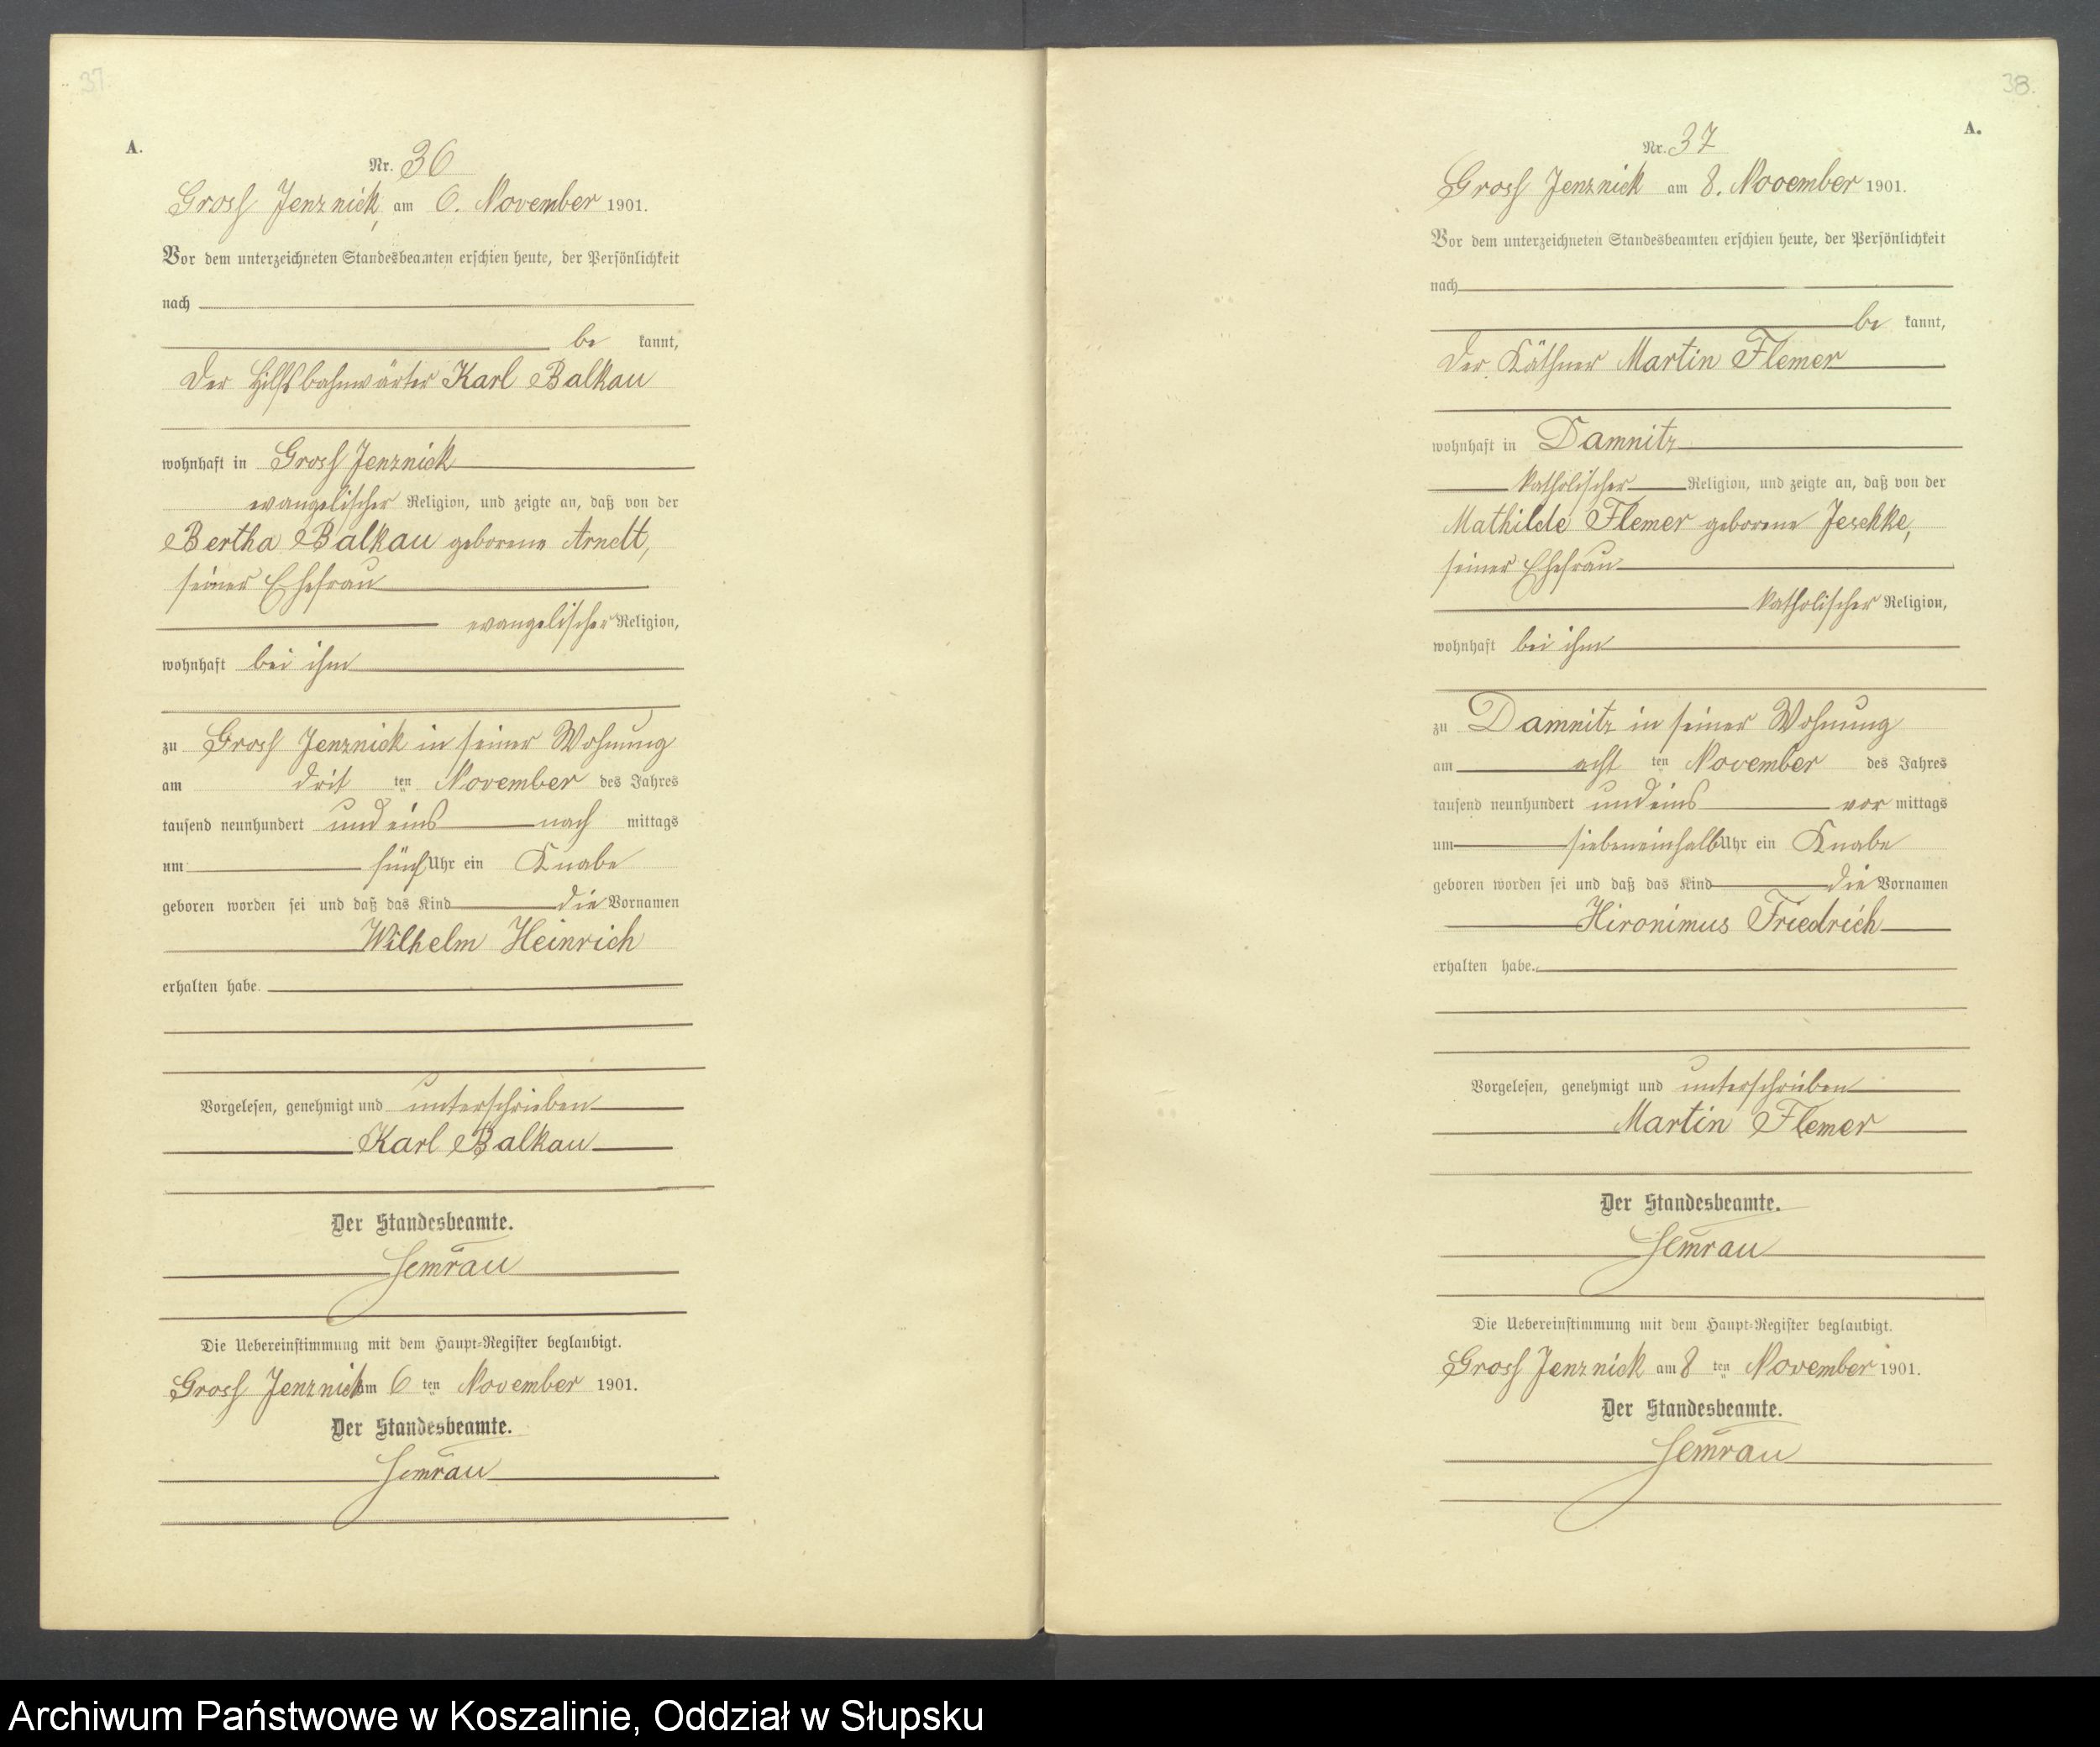 37.
A.
Nr. 36
Gross Jenznick, am 6. November 1901.
Vor dem unterzeichneten Standesbeamten erschien heute, der Persönlichkeit
nach
be kannt,
der Hilfsbahnwärter Karl Balkau
wohnhaft in Gross Jenznick
evangelischer Religion, und zeigte an, daß von der
Bertha Balkau geborene Arndt,
seiner Ehefrau
evangelischer Religion,
wohnhaft bei ihm
zu Gross Jenznick in seiner Wohnung
am drit ten November des Jahres
tausend neunhundert und eins nach mittags
um fünf Uhr ein Knabe
geboren worden sei und daß das Kind die Vornamen
Wilhelm Heinrich
erhalten habe.
Vorgelesen, genehmigt und unterschrieben
Karl Balkau
Der Standesbeamte.
Semrau
Die Uebereinstimmung mit dem Haupt-Register beglaubigt.
Gross Jenznick am 6 ten November 1901.
Der Standesbeamte.
Semrau
38.
A.
Nr. 37
Gross Jenznick am 8. November 1901.
Vor dem unterzeichneten Standesbeamten erschien heute, der Persönlichkeit
nach
be kannt,
der Käthner Martin Flemer
wohnhaft in Damnitz
katholischer Religion, und zeigte an, daß von der
Mathilde Flemer geborene Jeschke,
seiner Ehefrau
katholischer Religion,
wohnhaft bei ihm
zu Damnitz in seiner Wohnung
am acht ten November des Jahres
tausend neunhundert und eins vor mittags
um siebeneinhalb Uhr ein Knabe
geboren worden sei und daß das Kind die Vornamen
Hironimus Friedrich
erhalten habe.
Vorgelesen, genehmigt und unterschrieben
Martin Flemer
Der Standesbeamte.
Semrau
Die Uebereinstimmung mit dem Haupt-Register beglaubigt.
Gross Jenznick am 8 ten November 1901.
Der Standesbeamte.
Semrau
Archiwum Państwowe w Koszalinie, Oddział w Słupsku